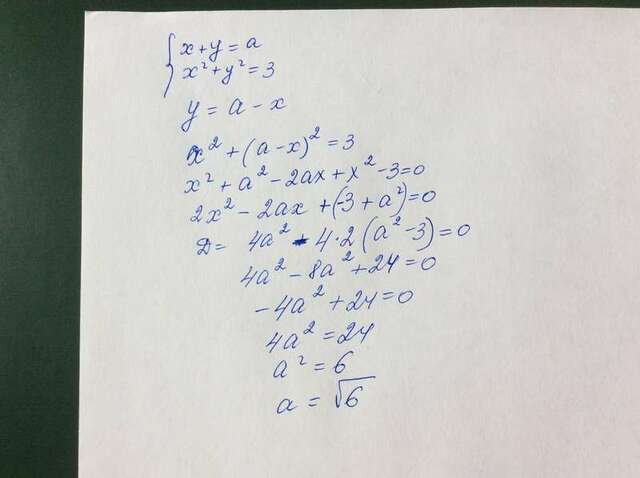 x+y=a
x²+y²=3
y=a-x
x²+(a-x)²=3
x²+a²-2ax+x²-3=0
2x²-2ax+(-3+a²)=0
D= 4a²-4·2(a²-3)=0
4a²-8a²+24=0
-4a²+24=0
4a²=24
a²=6
a=√6